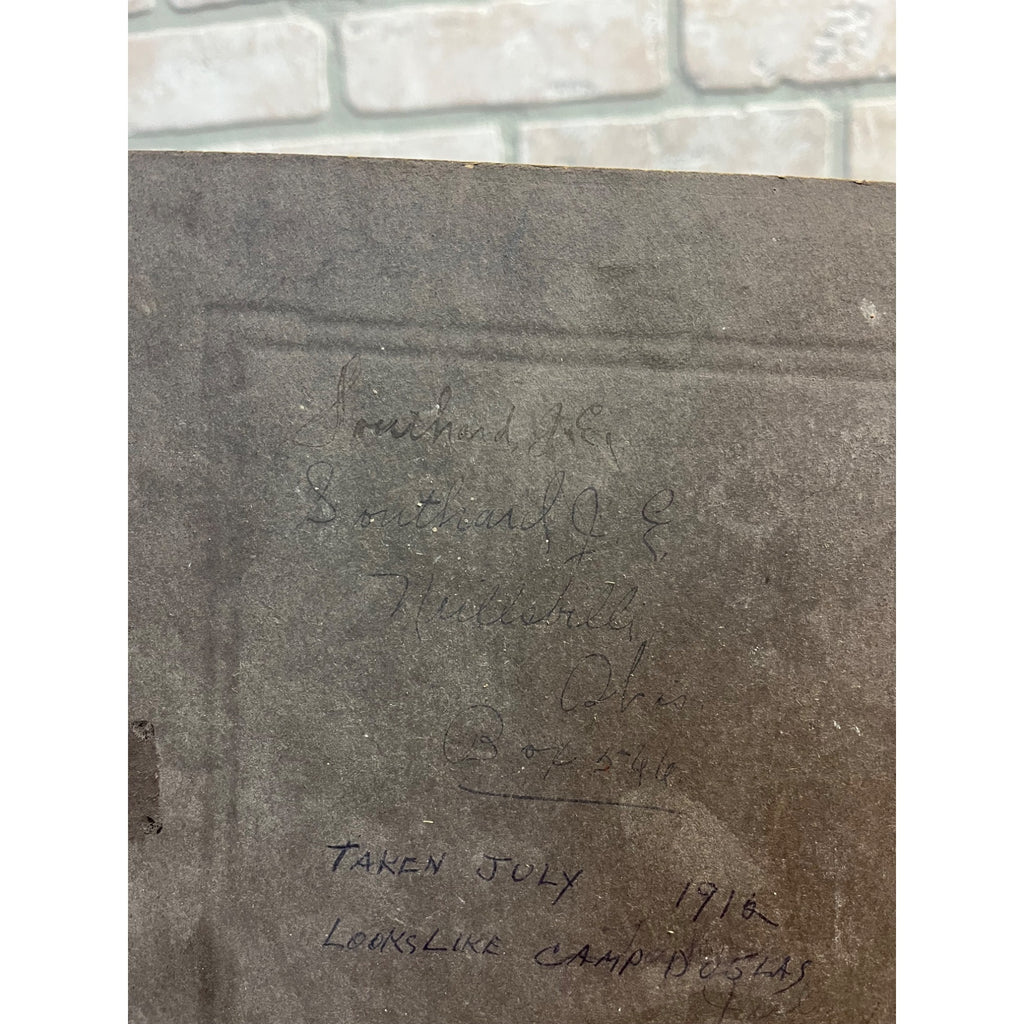 Southard, J. E.
Southard, J. E.
Ohio
Box 546
TAKEN JULY 1912
LOOKSLIKE CAMP DOUGLAS